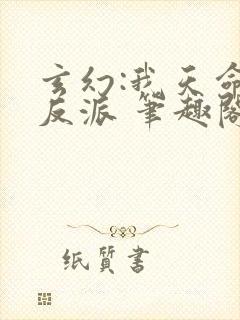 玄幻:我天命
反派 笔趣阁
纸质书